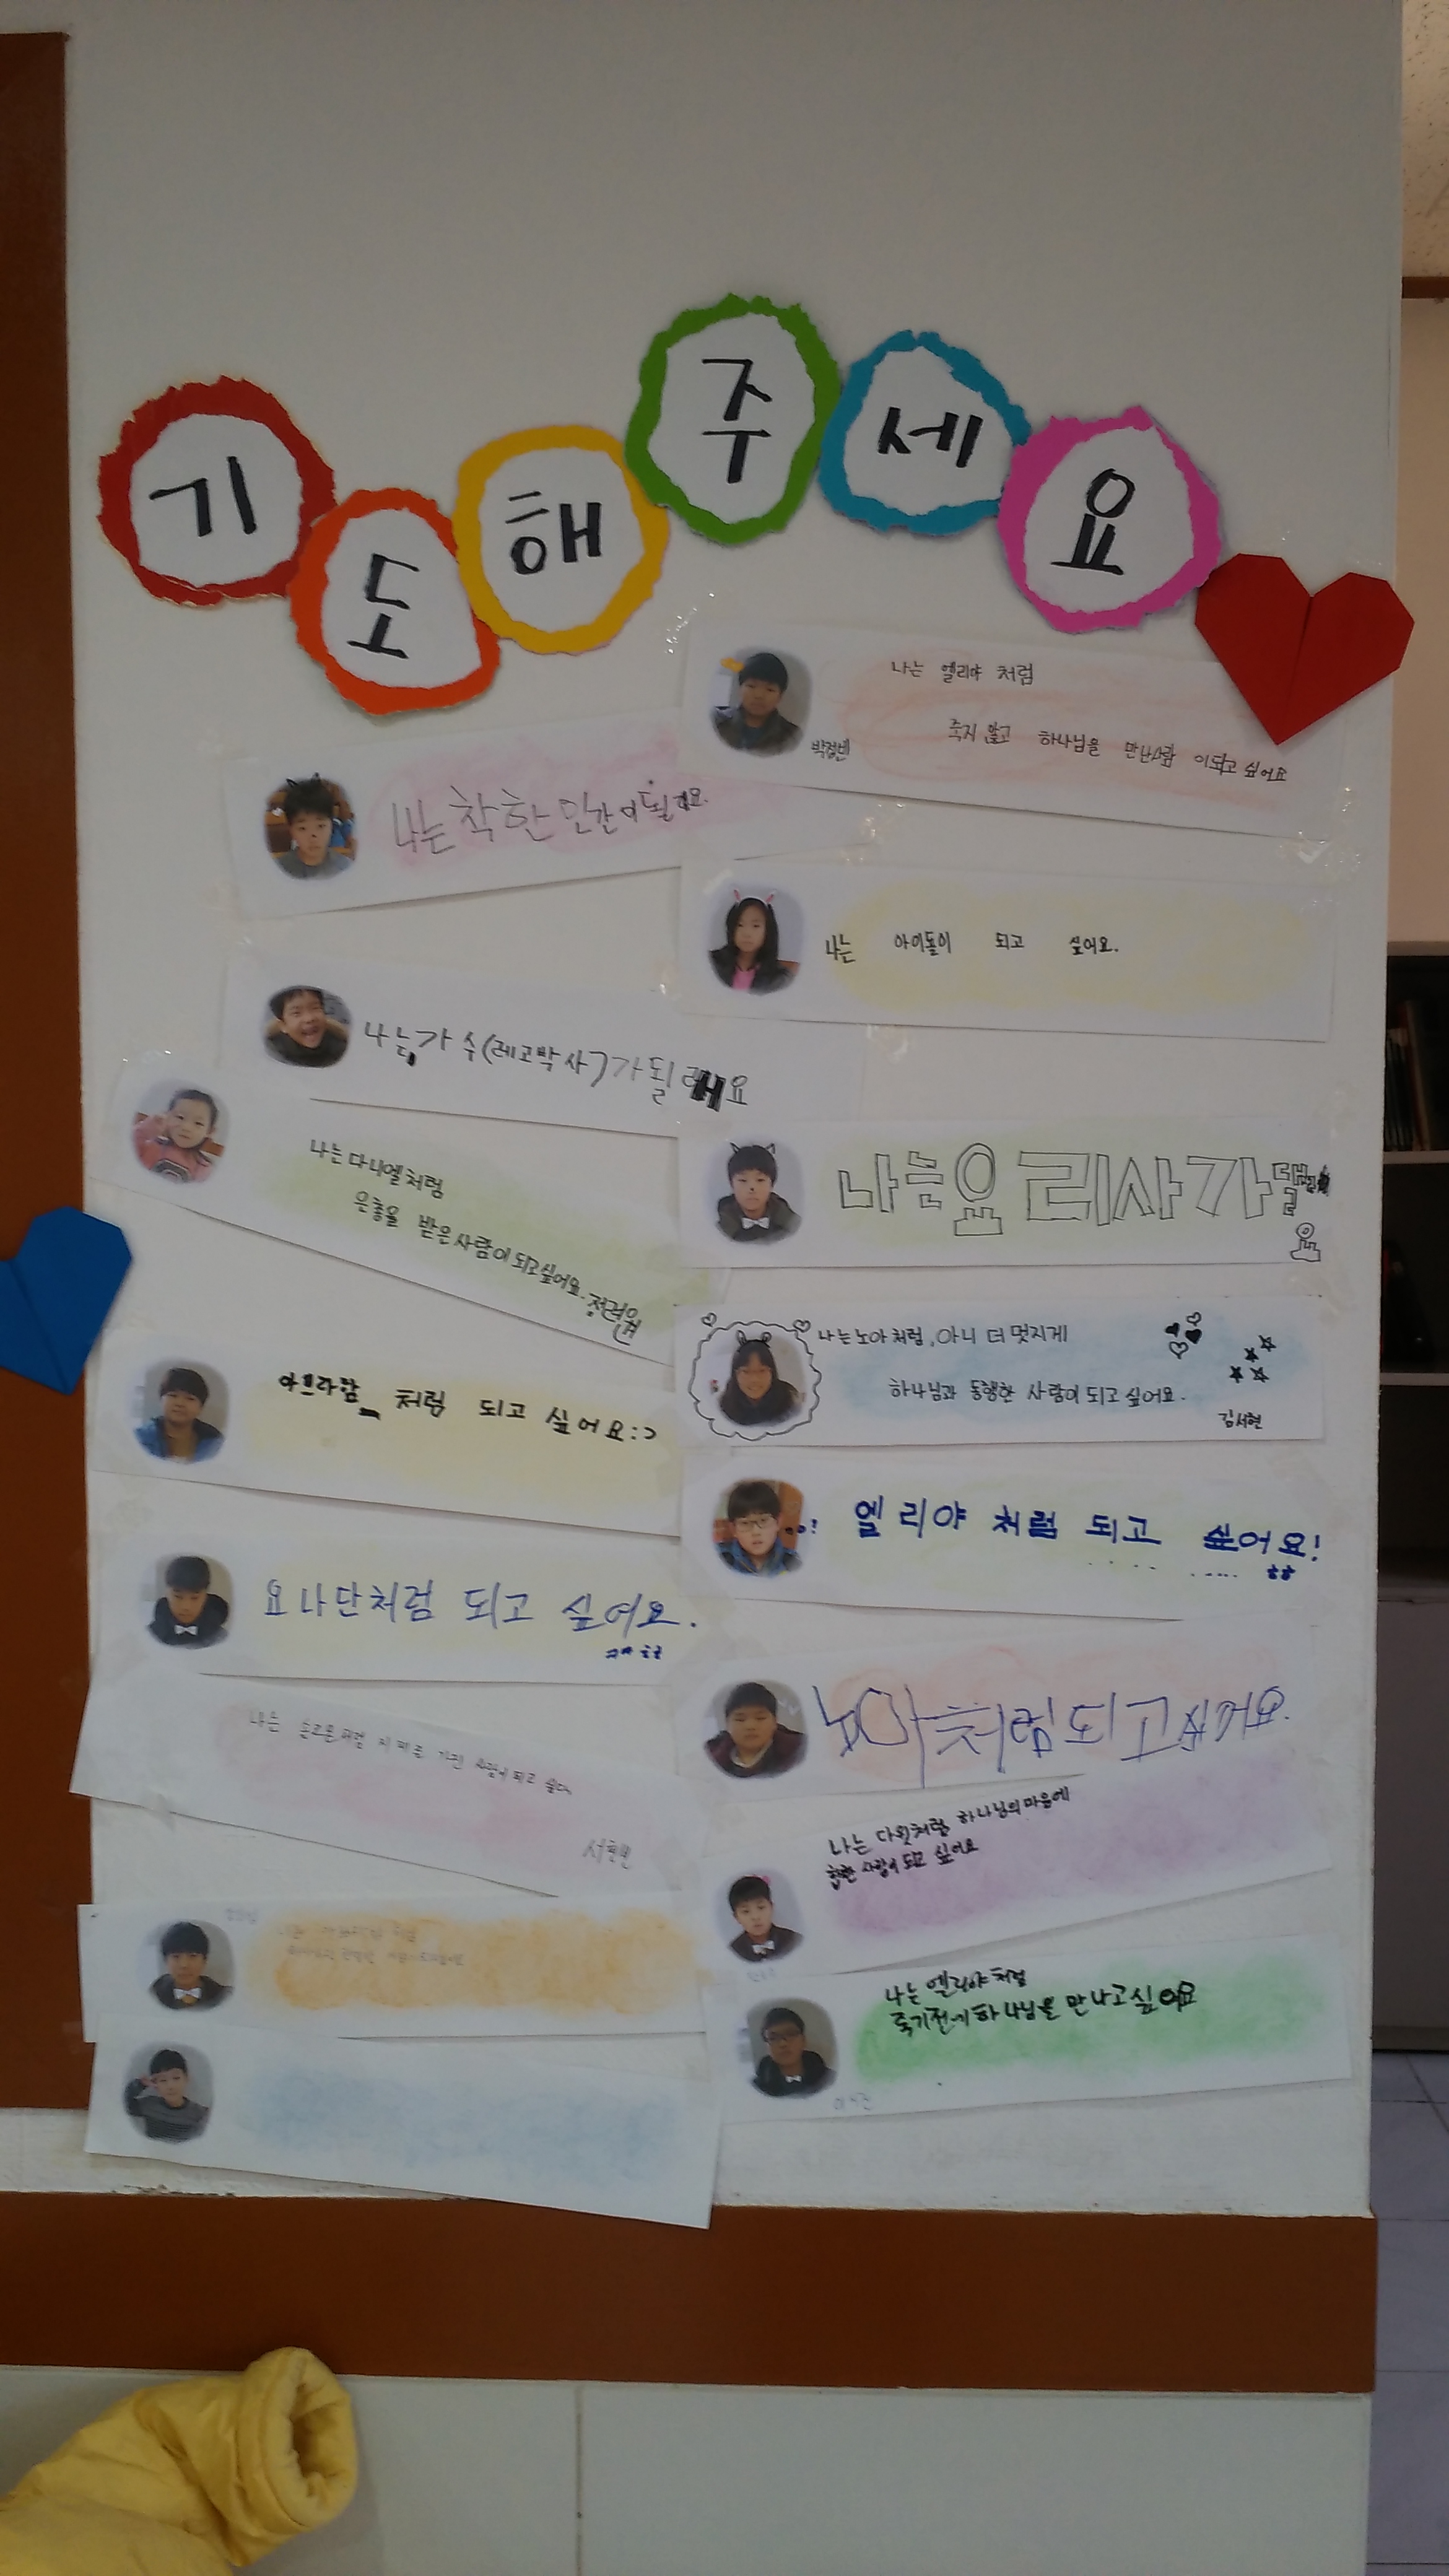 기도해주세요
나는 엘리야 처럼
죽지 않고 하나님을 만난사람 이되고 싶어요
나는 착한 인간이될래요.
나는 아이돌이 되고 싶어요.
나는가수(레고박사)가될래요
나는다니엘처럼
은총을 받은사람이되고싶어요.
나는요리사가될래요
나는노아처럼, 아니 더 멋지게
하나님과 동행한 사람이되고싶어요.
김서현
아브라함 처럼 되고 싶어요:>
엘리야 처럼 되고 싶어요!
ㅎㅎ
요나단처럼 되고 싶어요.
노아처럼되고싶어요.
나는 솔로몬처럼 지혜를 가진 사람이되고 싶다.
나는 다윗처럼 하나님의마음에
합한 사람이 되고 싶어요
나는엘리야처럼
죽기전에하나님을만나고싶어요